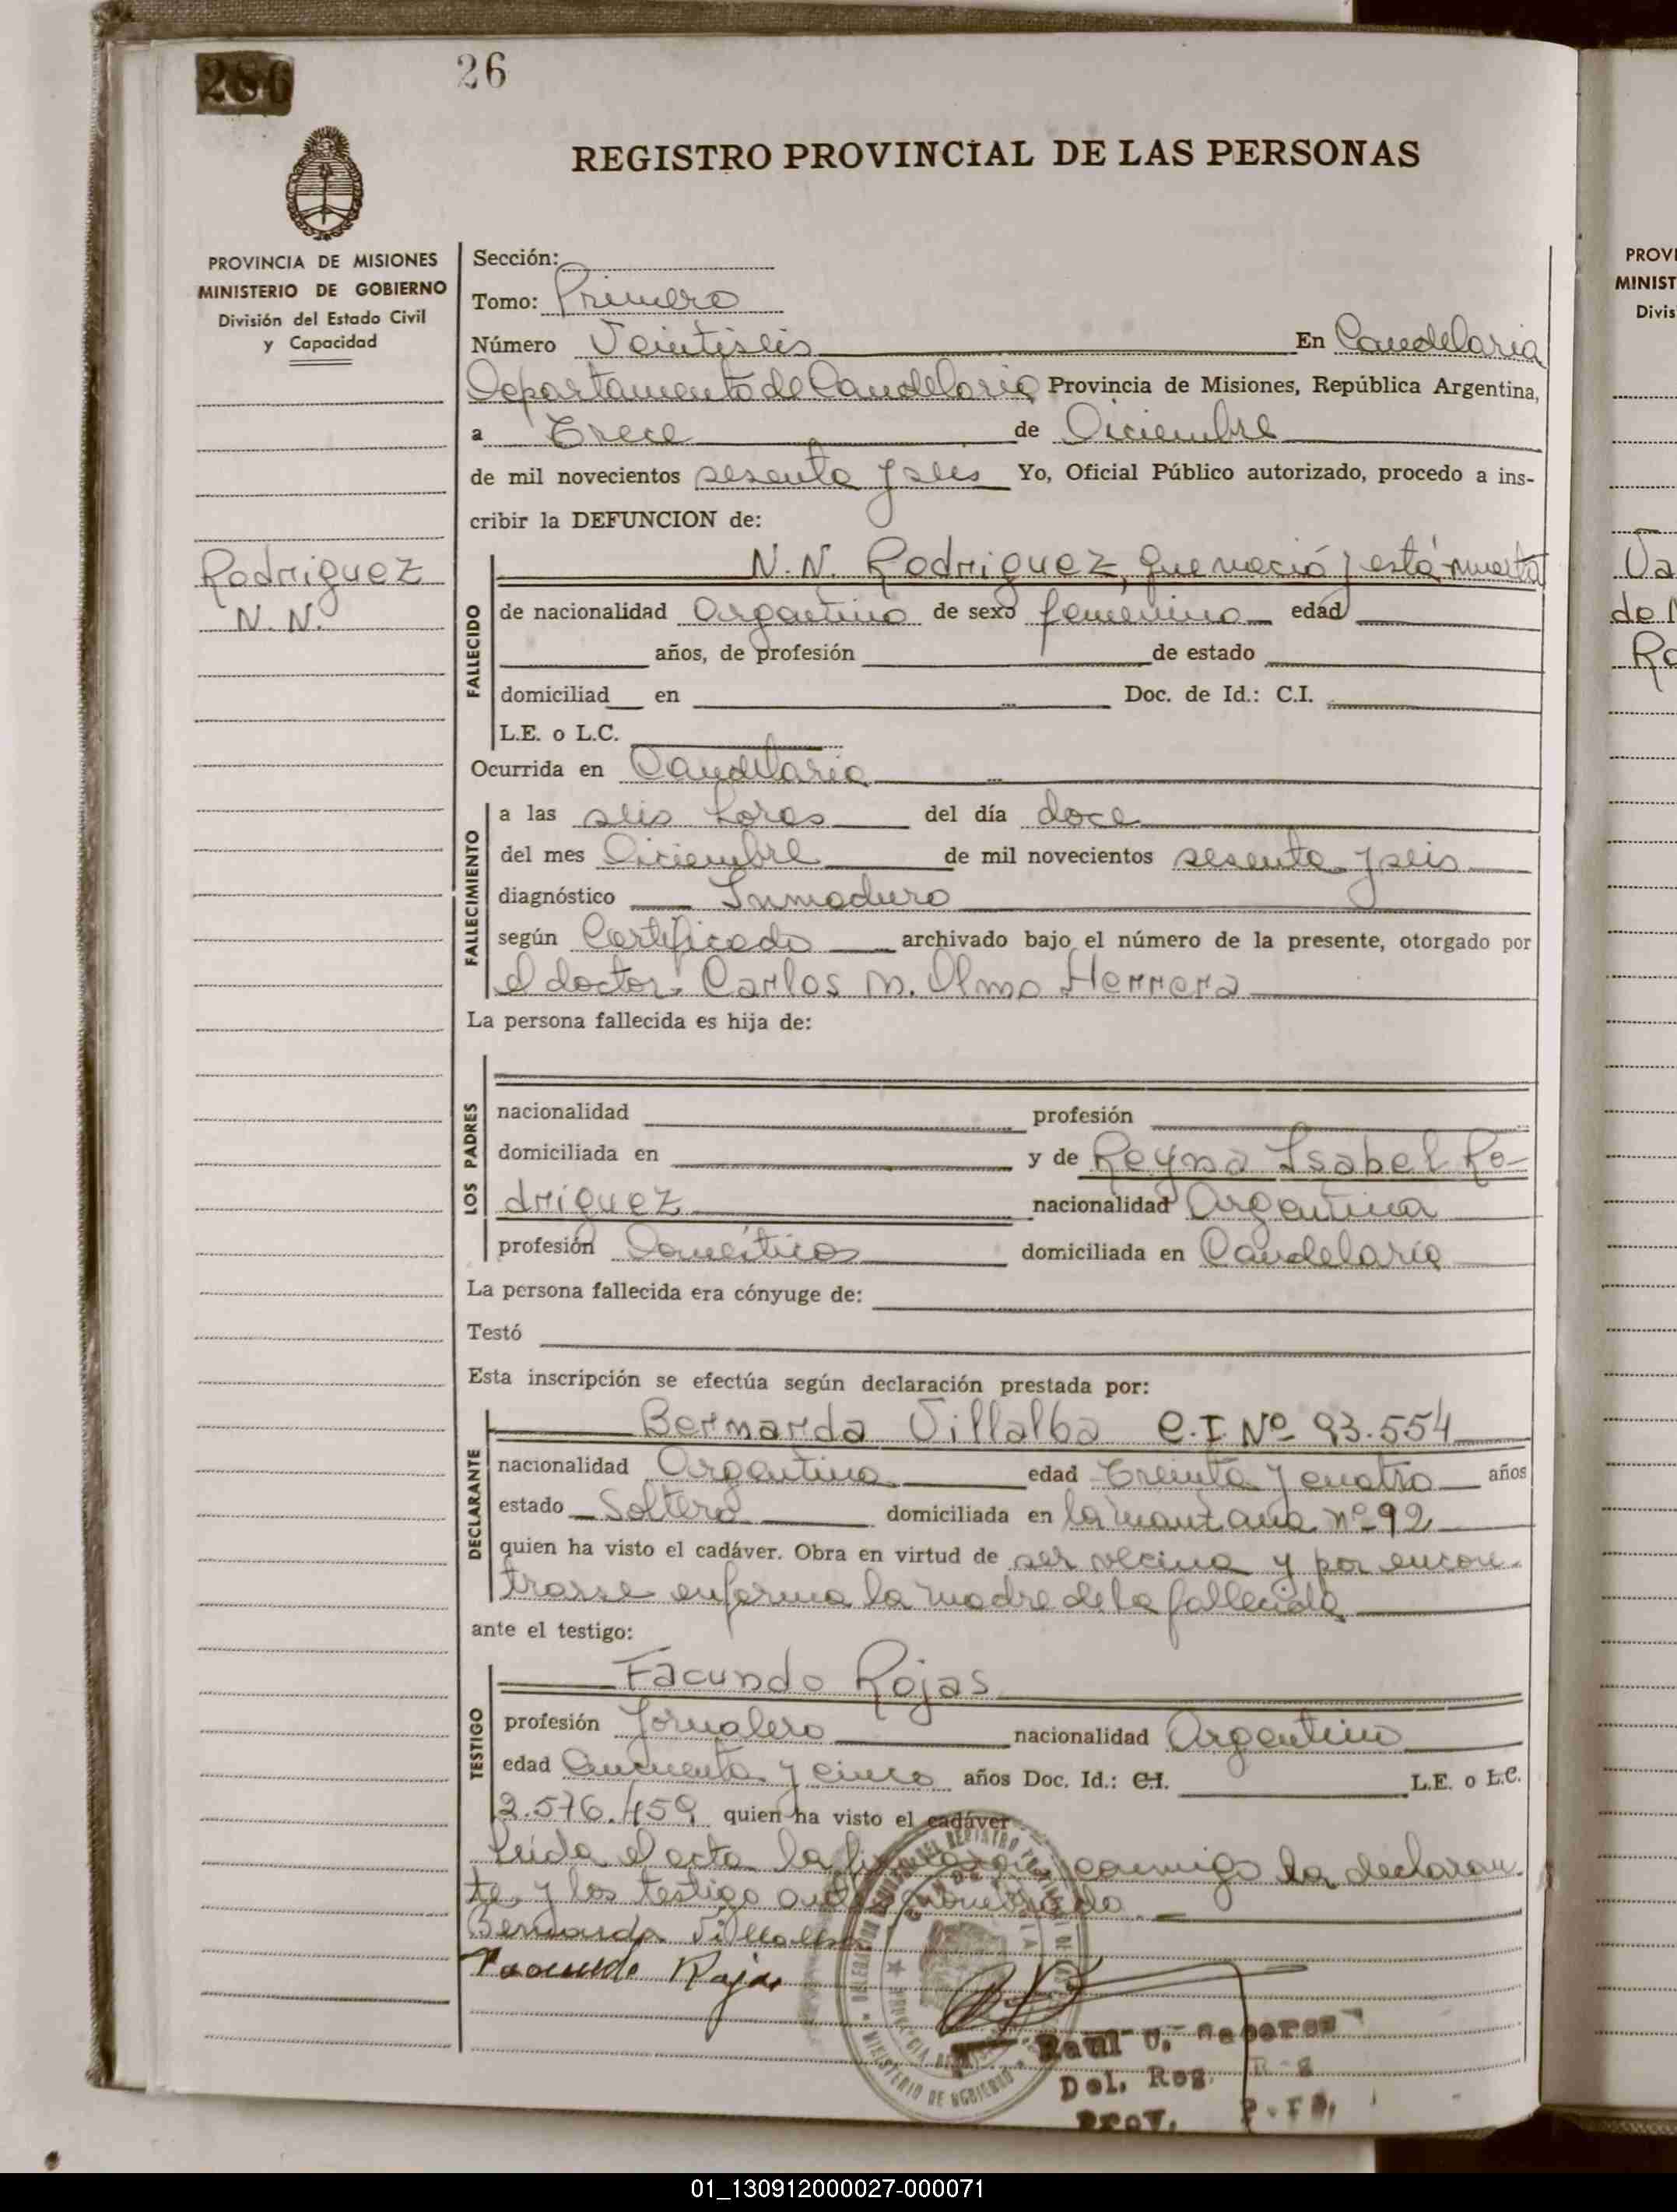 286
26
REGISTRO PROVINCIAL DE LAS PERSONAS
PROVINCIA DE MISIONES
MINISTERIO DE GOBIERNO
División del Estado Civil
y Capacidad
Rodriguez
N. N.
Sección:
Tomo: Primero
Número Veintiseis En Candelaria
Departamento de Candelaria Provincia de Misiones, República Argentina,
a Trece de Diciembre
de mil novecientos sesenta y seis Yo, Oficial Público autorizado, procedo a ins-
cribir la DEFUNCION de:
FALLECIDO
N. N. Rodriguez, que nació y está muerta
de nacionalidad Argentina de sexo femenino edad
años, de profesión de estado
domiciliad en Doc. de Id.: C.I.
L.E. o L.C.
Ocurrida en Candelaria
FALLECIMIENTO
a las seis horas del día doce
del mes Diciembre de mil novecientos sesenta y seis
diagnóstico Inmaduro
según Certificado archivado bajo el número de la presente, otorgado por
el doctor. Carlos M. Olmo Herrera
La persona fallecida es hija de:
LOS PADRES
nacionalidad profesión
domiciliada en y de Reyna Isabel Ro-
driguez nacionalidad Argentina
profesión Domésticos domiciliada en Candelaria
La persona fallecida era cónyuge de:
Testó
Esta inscripción se efectúa según declaración prestada por:
DECLARANTE
Bernarda Villalba C.I. Nº 93.554
nacionalidad Argentina edad Treinta y cuatro años
estado Soltera domiciliada en la manzana nº 92
quien ha visto el cadáver. Obra en virtud de ser vecina y por encon-
trarse enferma la madre de la fallecida
ante el testigo:
TESTIGO
Facundo Rojas
profesión Jornalero nacionalidad Argentino
edad Cincuenta y cinco años Doc. Id.: C.I. L.E. o L.C.
2.576.459 quien ha visto el cadáver
Leída el acta la conmigo la declaran-
te y los testigo
Bernarda Villalba
Facundo Rojas
MINISTERIO DE GOBIERNO
Raul
Del. Reg.
Prov.
PROVI
MINIST
Divis
01_130912000027-000071